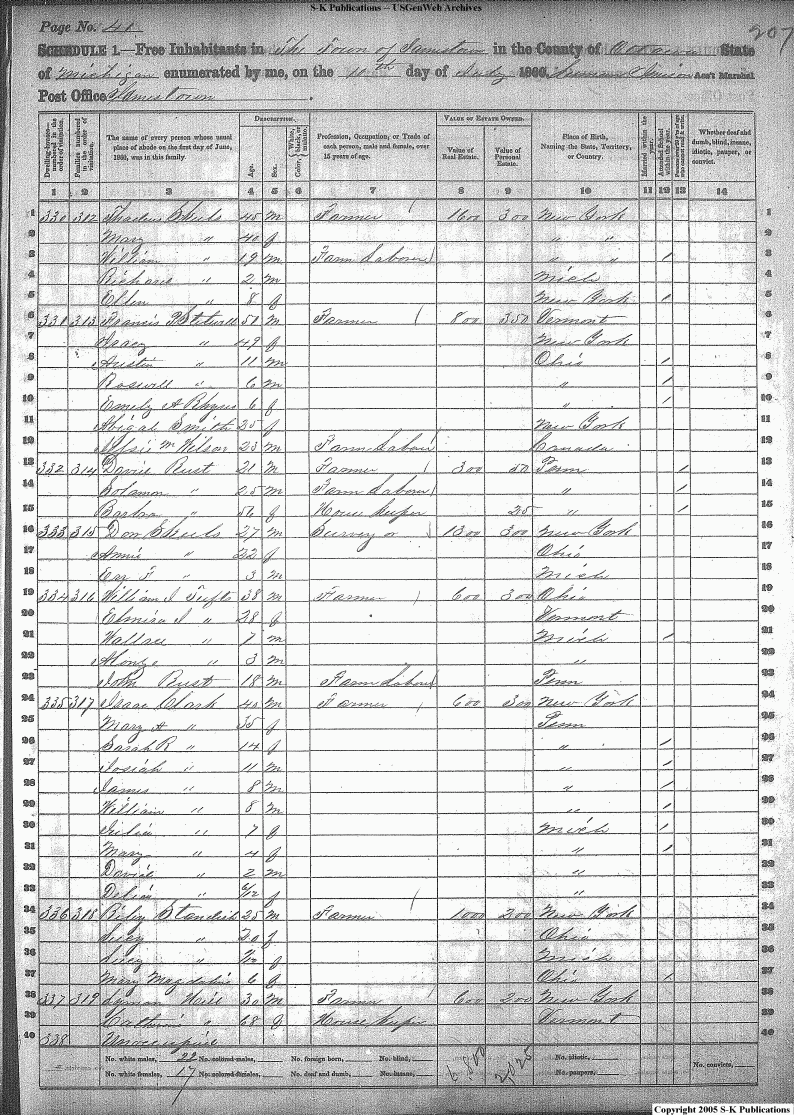 S-K Publications -- USGenWeb Archives
Page No. 41
207
SCHEDULE 1.—Free Inhabitants in The Town of Jamestown in the County of Ottawa State
of Michigan enumerated by me, on the 10th day of July 1860. Ass't Marshal
Post Office Jamestown
Dwelling-houses numbered in the order of visitation.
Families numbered in the order of visitation.
The name of every person whose usual place of abode on the first day of June, 1860, was in this family.
DESCRIPTION.
Age.
Sex.
Color, White, black, or mulatto.
Profession, Occupation, or Trade of each person, male and female, over 15 years of age.
VALUE OF ESTATE OWNED.
Value of Real Estate.
Value of Personal Estate.
Place of Birth, Naming the State, Territory, or Country.
Married within the year.
Attended School within the year.
Persons over 20 y'rs of age who cannot read & write.
Whether deaf and dumb, blind, insane, idiotic, pauper, or convict.
1 2 3 4 5 6 7 8 9 10 11 12 13 14
1 330 312 45 m Farmer 1600 300 New York 1
2 Mary " 40 f " " 2
3 William " 19 m Farm Laborer " " / 3
4 Richard " 2 m Mich 4
5 Ellen " 8 f New York / 5
6 331 313 Francis 51 m Farmer 800 350 Vermont 6
7 " 49 f New York 7
8 Austin " 11 m Ohio / 8
9 Roswell " 6 m " / 9
10 Emily A 6 f " / 10
11 Abigal Smith 25 f New York 11
12 Wilson 23 m Farm Labour Canada 12
13 332 314 David Rust 21 m Farmer 300 50 Penn / 13
14 Solamon " 25 m Farm Laborer " / 14
15 " 56 f House Keeper 25 " / 15
16 333 315 Don 27 m Survey or 1300 300 New York 16
17 Annie " 22 f Ohio 17
18 F " 3 m Mich 18
19 334 316 William J Tufts 38 m Farmer 600 300 Ohio 19
20 Elmira J " 28 f Vermont 20
21 Wallace " 7 m Mich / 21
22 Alonzo " 3 m " 22
23 John Rust 18 m Farm Laborer Penn 23
24 335 317 Isaac Clark 40 m Farmer 600 300 New York 24
25 Mary A " 35 f Penn 25
26 Sarah R " 14 f " / 26
27 Josiah " 11 m " / 27
28 James " 8 m " / 28
29 William " 8 m " / 29
30 Julia " 7 f Mich / 30
31 Mary " 4 f " / 31
32 David " 2 m " 32
33 Delia " f " 33
34 336 318 Standish 25 m Farmer 1000 200 New York 34
35 Lucy " 20 f Ohio 35
36 Lucy " f Mich 36
37 Mary 6 f Ohio / 37
38 337 319 30 m Farmer 600 200 New York 38
39 " 68 f House Keeper Vermont 39
40 338 40
No. white males, 22 No. colored males, No. foreign born, No. blind, No. idiotic, No. convicts,
No. white females, 17 No. colored females, No. deaf and dumb, No. insane, No. paupers,
6,800 2,025
Copyright 2005 S-K Publications